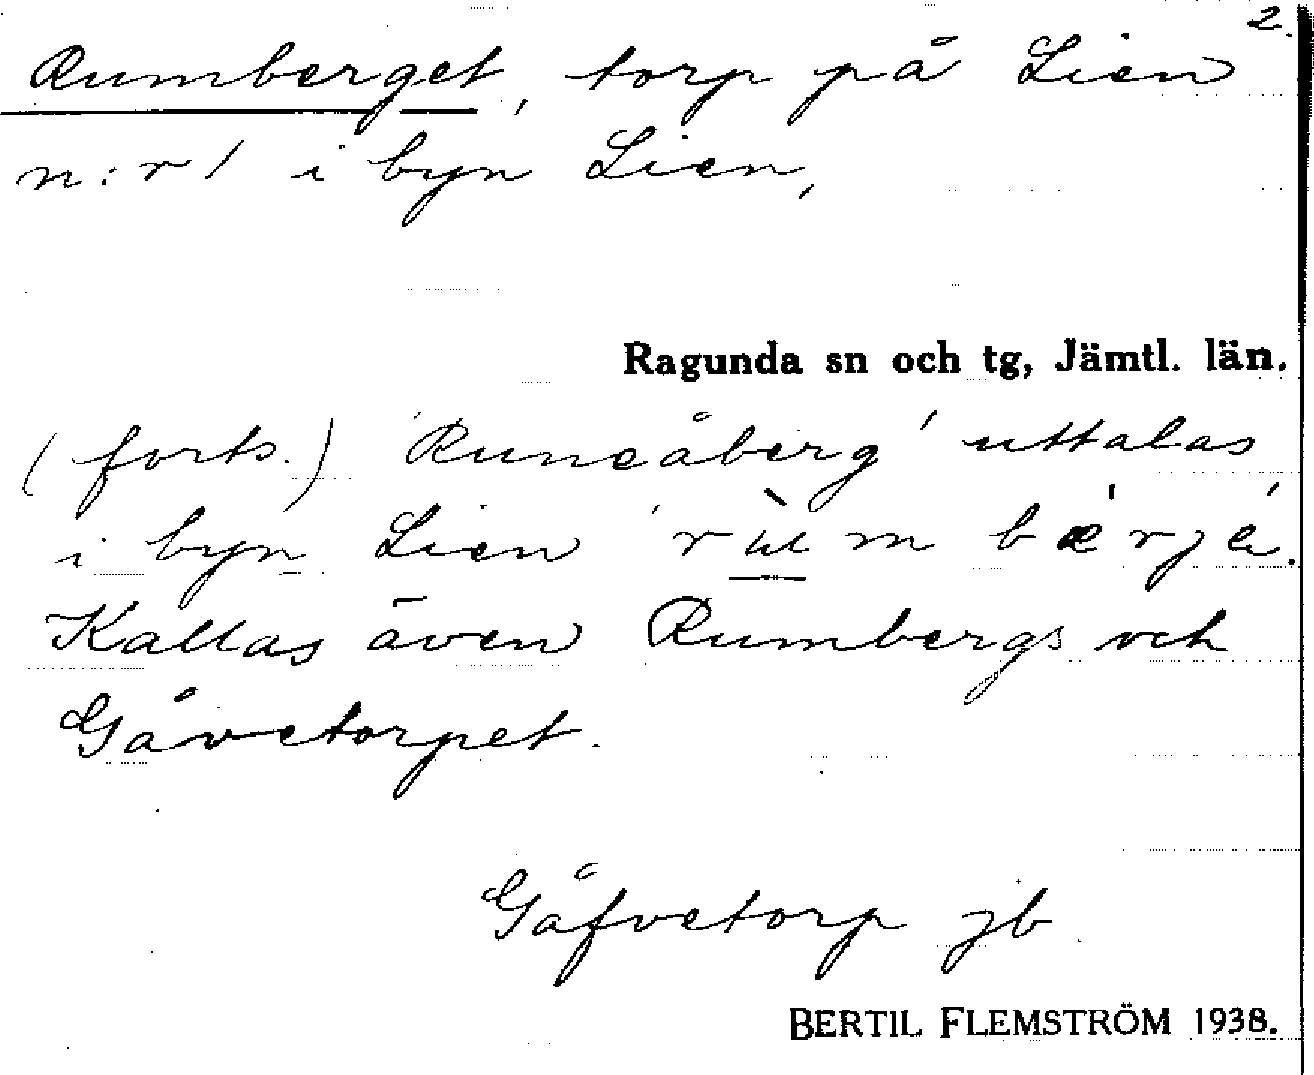 2.
Rumberget, torp på Lien
n:r 1 i byn Lien,
Ragunda sn och tg, Jämtl. län.
(forts.) 'Runeåberg' uttalas
i byn Lien
Kallas även Rumbergs och
Gåvetorpet.
Gåfvetorp jb
BERTIL FLEMSTRÖM 1938.